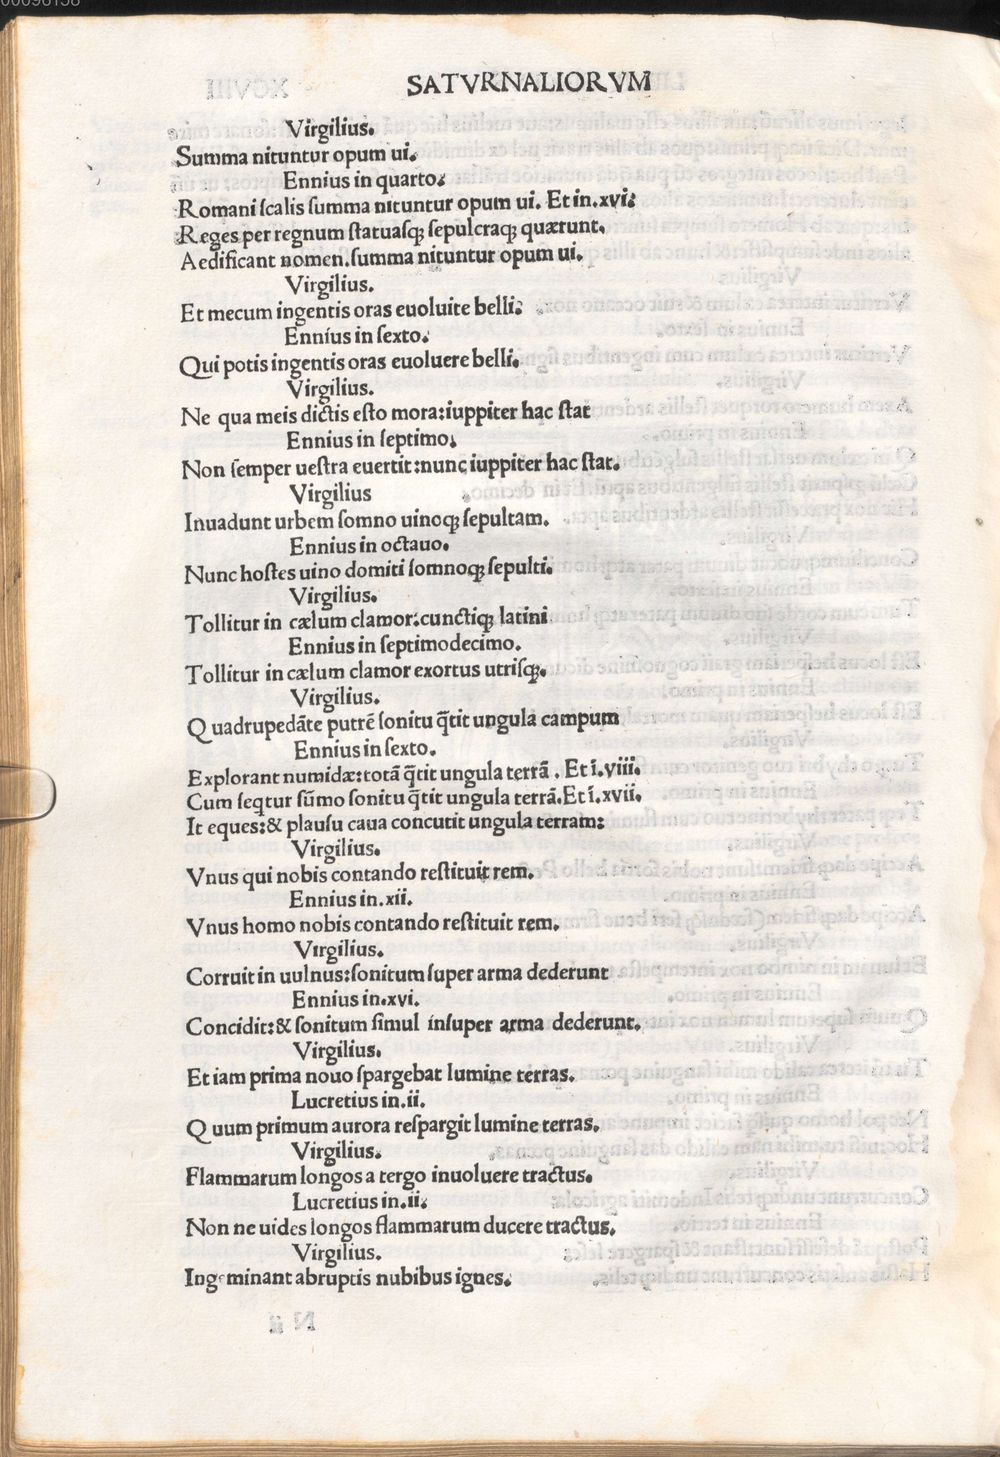 SATVRNALIORVM
Virgilius.
Summa nituntur opum ui.
Ennius in quarto.
Romani ſcalis ſumma nituntur opum ui. Et in.xvi.
Reges per regnum ſtatuaſq; ſepulcraq; quærunt.
Aedificant nomen.ſumma nituntur opum ui.
Virgilius.
Et mecum ingentis oras euoluite belli.
Ennius in ſexto.
Qui potis ingentis oras euoluere belli.
Virgilius.
Ne qua meis dictis eſto mora:iuppiter hac ſtat
Ennius in ſeptimo.
Non ſemper ueſtra euertit:nunc iuppiter hac ſtat.
Virgilius
Inuadunt urbem ſomno uinoq; ſepultam.
Ennius in octauo.
Nunc hoſtes uino domiti ſomnoq; ſepulti.
Virgilius.
Tollitur in cælum clamor:cunctiq; latini
Ennius in ſeptimodecimo.
Tollitur in cælum clamor exortus utriſq;.
Virgilius.
Quadrupedāte putrē ſonitu q̄tit ungula campum
Ennius in ſexto.
Explorant numidæ:totā q̄tit ungula terrā . Et ī.viii.
Cum ſeqtur ſūmo ſonitu q̄tit ungula terrā.Et ī.xvii.
It eques:& plauſu caua concutit ungula terram:
Virgilius.
Vnus qui nobis contando reſtituit rem.
Ennius in.xii.
Vnus homo nobis contando reſtituit rem.
Virgilius.
Corruit in uulnus:ſonitum ſuper arma dederunt
Ennius in.xvi.
Concidit:& ſonitum ſimul inſuper arma dederunt.
Virgilius.
Et iam prima nouo ſpargebat lumine terras.
Lucretius in.ii.
Quum primum aurora reſpargit lumine terras.
Virgilius.
Flammarum longos a tergo inuoluere tractus.
Lucretius in.ii.
Non ne uides longos flammarum ducere tractus.
Virgilius.
Ingeminant abruptis nubibus ignes.